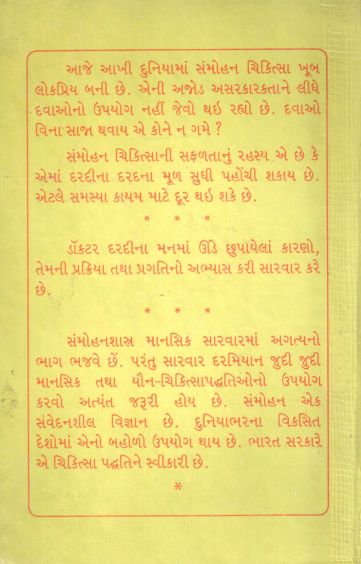 આજે આખી દુનિયામાં સંમોહન ચિકિત્સા ખૂબ
લોકપ્રિય બની છે. એની અજોડ અસરકારકતાને લીધે
દવાઓનો ઉપયોગ નહીં જેવો થઇ રહ્યો છે. દવાઓ
વિના સાજા થવાય એ કોને ન ગમે ?
સંમોહન ચિકિત્સાની સફળતાનું રહસ્ય એ છે કે
એમાં દરદીના દરદના મૂળ સુધી પહોંચી શકાય છે.
એટલે સમસ્યા કાયમ માટે દૂર થઇ શકે છે.
* * *
ડૉકટર દરદીના મનમાં ઊંડે છુપાયેલાં કારણો,
તેમની પ્રક્રિયા તથા પ્રગતિનો અભ્યાસ કરી સારવાર કરે
છે.
* * *
સંમોહનશાસ્ત્ર માનસિક સારવારમાં અગત્યનો
ભાગ ભજવે છે. પરંતુ સારવાર દરમિયાન જુદી જુદી
માનસિક તથા યૌન-ચિકિત્સાપદ્ધતિઓનો ઉપયોગ
કરવો અત્યંત જરૂરી હોય છે. સંમોહન એક
સંવેદનશીલ વિજ્ઞાન છે. દુનિયાભરના વિકસિત
દેશોમાં એનો બહોળો ઉપયોગ થાય છે. ભારત સરકારે
એ ચિકિત્સા પદ્ધતિને સ્વીકારી છે.
*